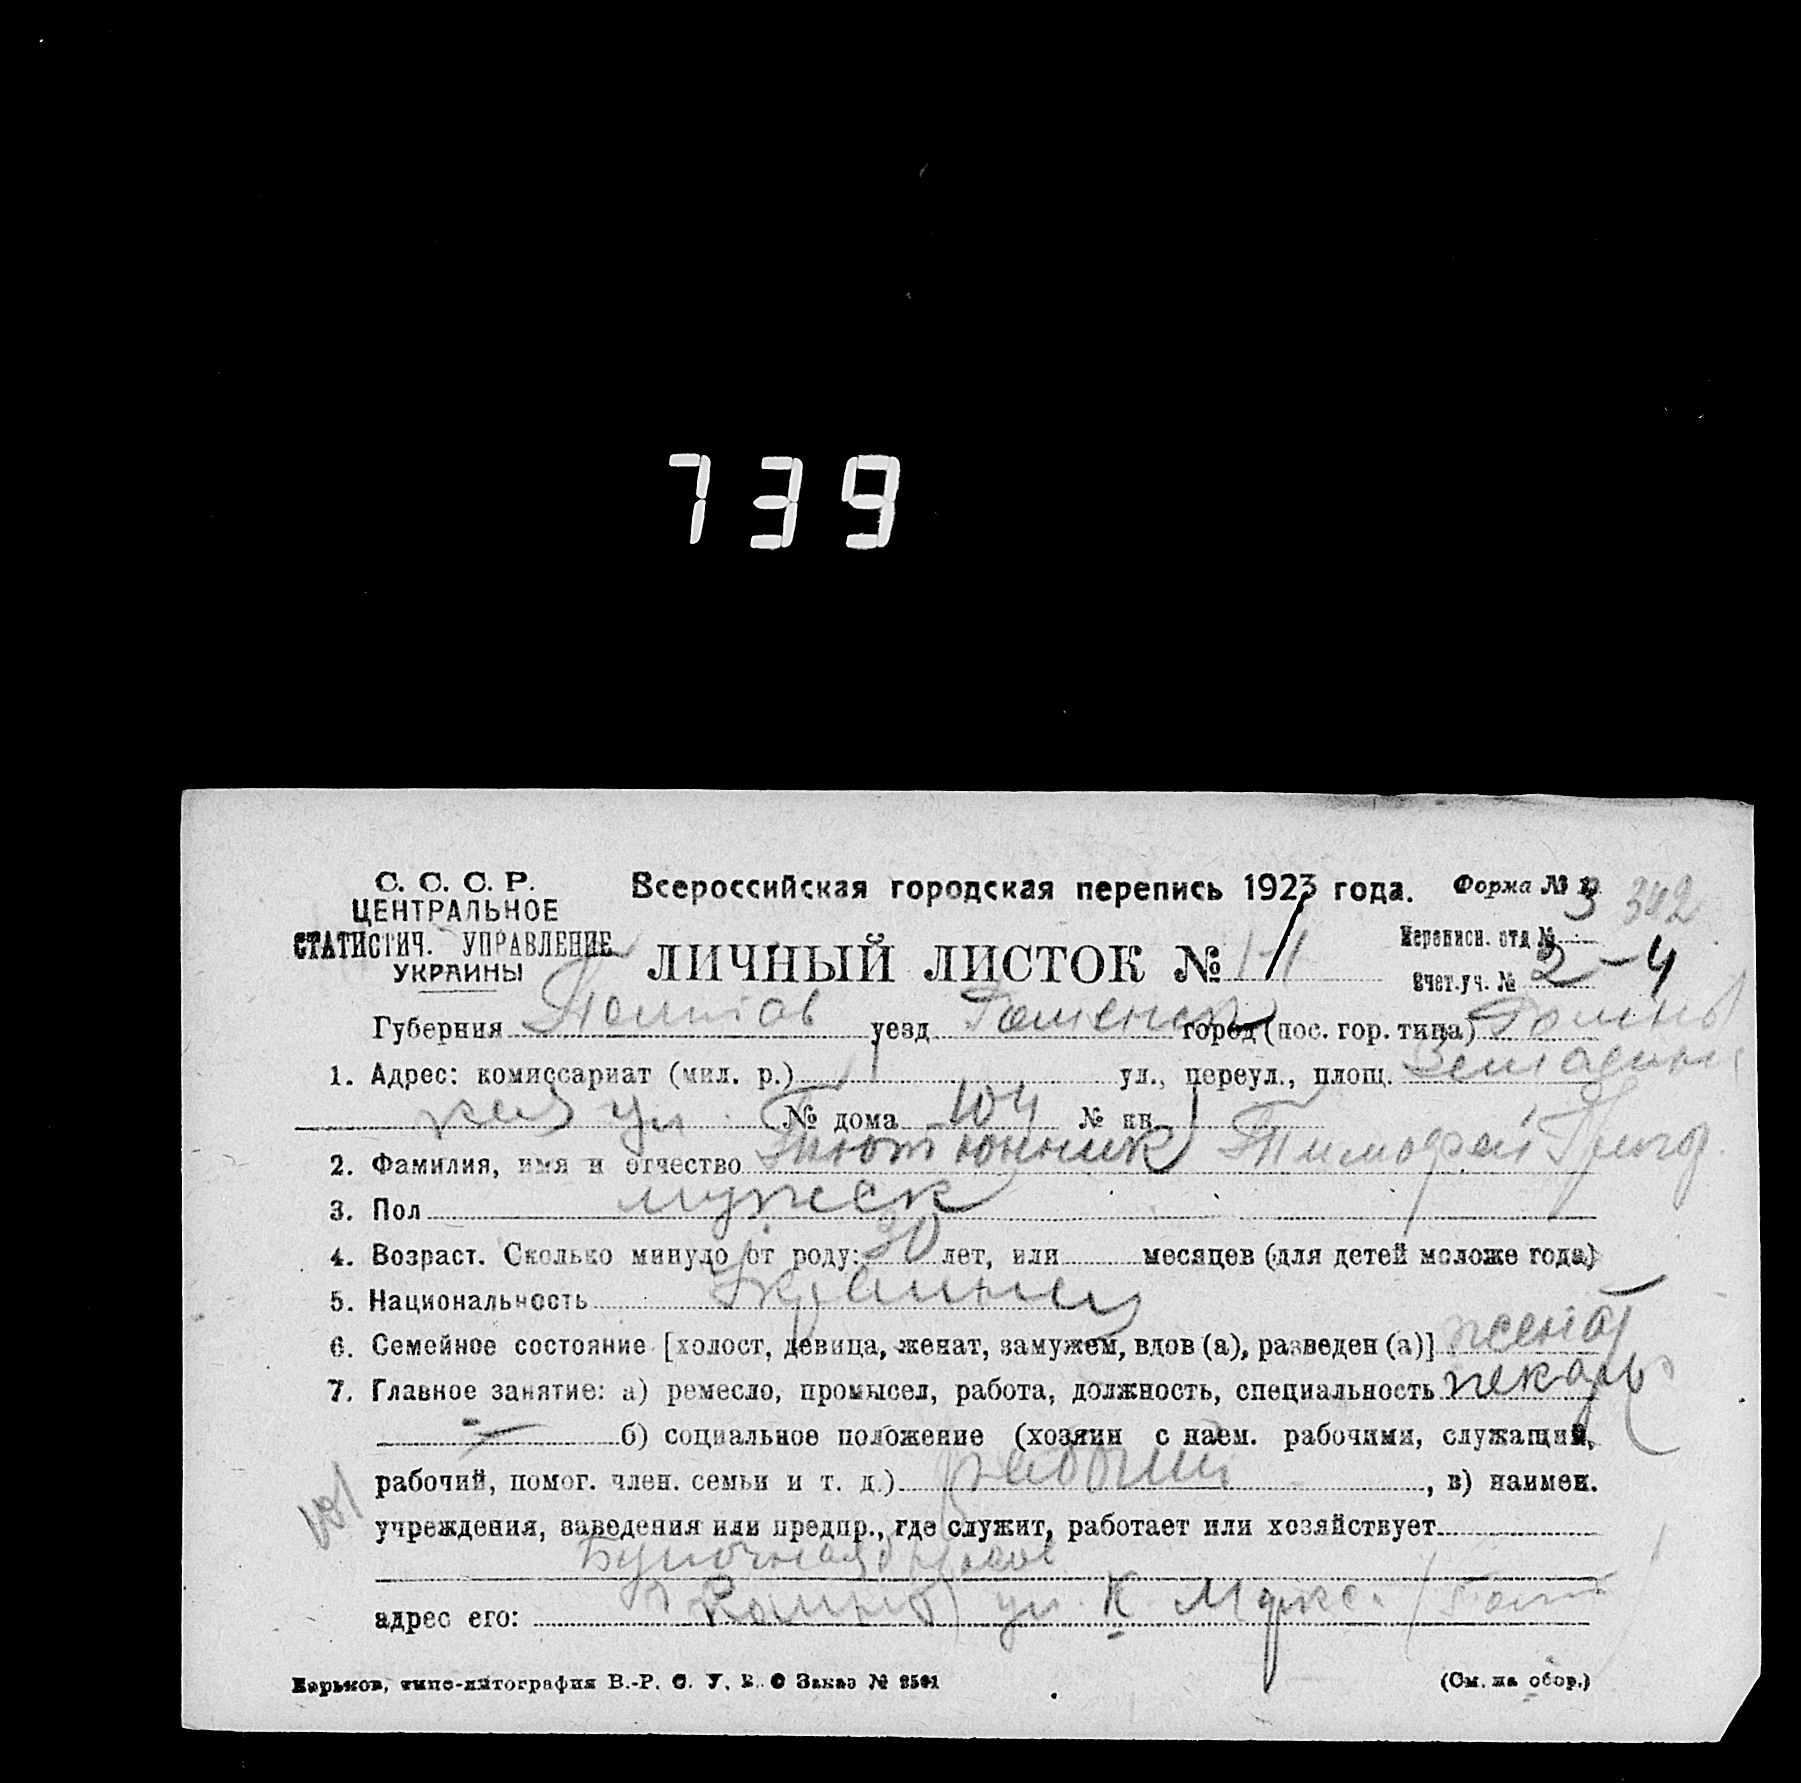 739
С. С. С. Р.
ЦЕНТРАЛЬНОЕ
СТАТИСТИЧ. УПРАВЛЕНИЕ
УКРАИНЫ
Всероссийская городская перепись 1923 года.
Форма № 3 342
ЛИЧНЫЙ ЛИСТОК №
Переписн. отд №
Счет. уч. № 2-4
Губерния Полтав уезд Роменск город (пос. гор. типа) Ромны
1. Адрес: комиссариат (мил. р.) 1 ул., переул., площ.
ул № дома 104 № кв. 1
2. Фамилия, имя и отчество Тютюнник Тимофей Григор.
3. Пол мужск
4. Возраст. Сколько минуло от роду: 30 лет, или месяцев (для детей моложе года)
5. Национальность Украинец
6. Семейное состояние [холост, девица, женат, замужем, вдов (а), разведен (а)] женат
7. Главное занятие: а) ремесло, промысел, работа, должность, специальность пекарь
б) социальное положение (хозяин с наем. рабочими, служащий,
рабочий, помог. член. семьи и т. д.) рабочий, в) наимен.
учреждения, заведения или предпр., где служит, работает или хозяйствует
Булочная
адрес его: Ромны ул. К. Маркса
Харьков, типо-литография В.-Р. С. У. В. О Заказ №
(См. на обор.)